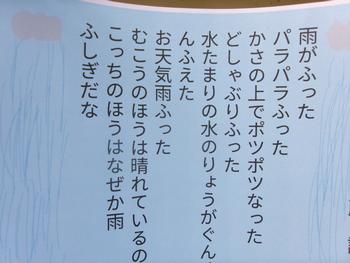 雨がふった
パラパラふった
かさの上でポツポツなった
どしゃぶりふった
水たまりの水のりょうがぐん
んふえた
お天気雨ふった
むこうのほうは晴れているの
こっちのほうはなぜか雨
ふしぎだな